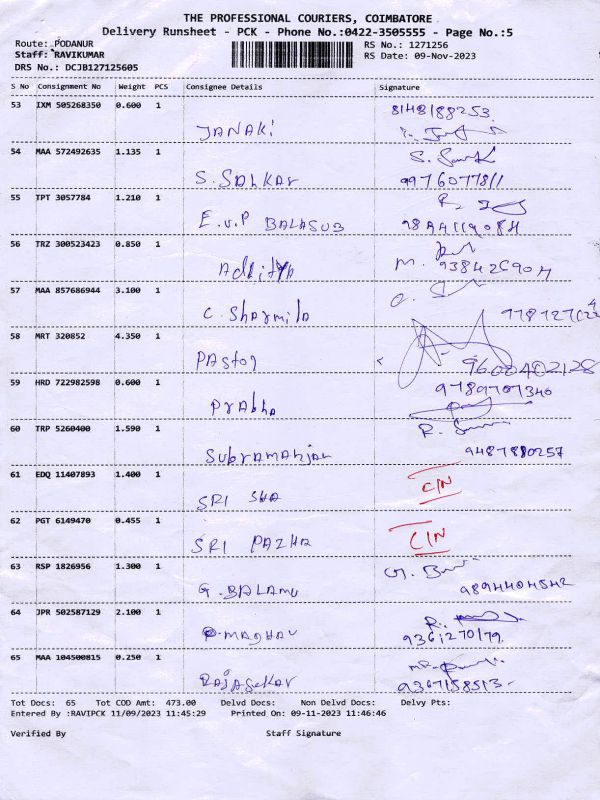 THE PROFESSIONAL COURIERS, COIMBATORE
Delivery Runsheet - PCK - Phone No.:0422-3505555 - Page No.:5
Route: PODANUR
Staff: RAVIKUMAR
DRS No.: DCJB127125605
RS No.: 1271256
RS Date: 09-Nov-2023
S No Consignment No Weight PCS Consignee Details Signature
53 IXM 505268350 0.600 1
8148188253
JANAKI
54 MAA 572492635 1.135 1
S. SALKAR
9976077811
55 TPT 3057784 1.210 1
E.V.P BALASUB
56 TRZ 300523423 0.850 1
Additya
57 MAA 857686944 3.100 1
C. Sharmila
58 MRT 320852 4.350 1
Pastor
9600402128
59 HRD 722982598 0.600 1
9789707340
Prabha
60 TRP 5260400 1.590 1
Subramanian
9487880257
61 EDQ 11407893 1.400 1
C/N
SRI SHA
62 PGT 6149470 0.455 1
C/N
SRI PAZHA
63 RSP 1826956 1.300 1
G. BALAMU
64 JPR 502587129 2.100 1
MADHAV
9361270179
65 MAA 104500815 0.250 1
Rajasekar
9367158513
Tot Docs: 65 Tot COD Amt: 473.00 Delvd Docs: Non Delvd Docs: Delvy Pts:
Entered By :RAVIPCK 11/09/2023 11:45:29 Printed On: 09-11-2023 11:46:46
Verified By Staff Signature